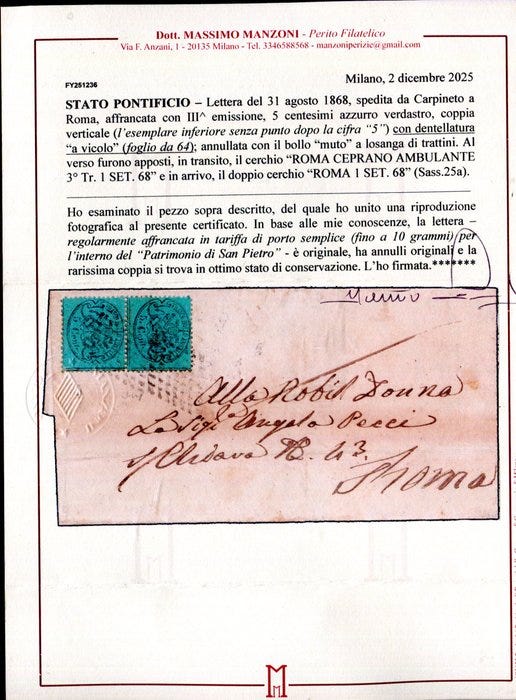 Dott. MASSIMO MANZONI - Perito Filatelico
Via F. Anzani, 1 - 20135 Milano - Tel. 3346588568 - manzoniperizie@gmail.com
FY251236
Milano, 2 dicembre 2025
STATO PONTIFICIO – Lettera del 31 agosto 1868, spedita da Carpineto a
Roma, affrancata con III^ emissione, 5 centesimi azzurro verdastro, coppia
verticale (l'esemplare inferiore senza punto dopo la cifra "5") con dentellatura
"a vicolo" (foglio da 64); annullata con il bollo "muto" a losanga di trattini. Al
verso furono apposti, in transito, il cerchio "ROMA CEPRANO AMBULANTE
3° Tr. 1 SET. 68" e in arrivo, il doppio cerchio "ROMA 1 SET. 68" (Sass.25a).
Ho esaminato il pezzo sopra descritto, del quale ho unito una riproduzione
fotografica al presente certificato. In base alle mie conoscenze, la lettera –
regolarmente affrancata in tariffa di porto semplice (fino a 10 grammi) per
l'interno del "Patrimonio di San Pietro" - è originale, ha annulli originali e la
rarissima coppia si trova in ottimo stato di conservazione. L'ho firmata.*******
Alla Nobil Donna
La Sig.ra Angela Pecci
N. 43.
Roma
M